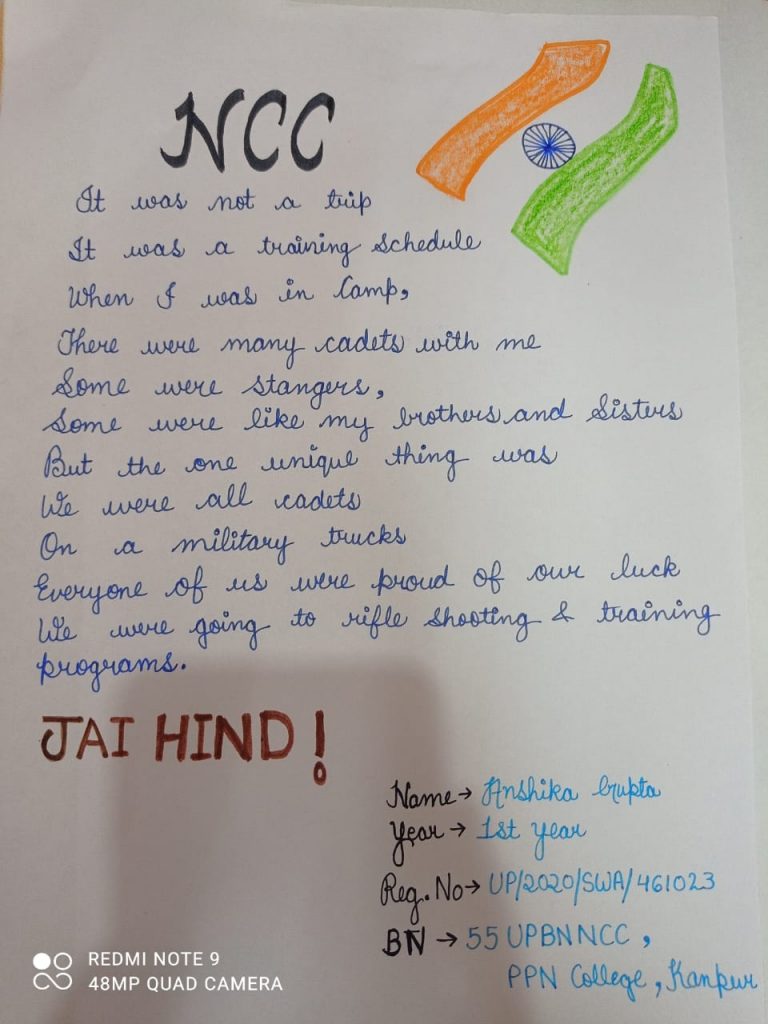 NCC
It was not a trip
It was a training schedule
When I was in Camp,
There were many cadets with me
Some were stangers,
Some were like my brothers and Sisters
But the one unique thing was
We were all cadets
On a military trucks
Everyone of us were proud of our luck
We were going to rifle shooting & training
programs.
JAI HIND!
Name → Anshika Gupta
Year → 1st year
Reg. No → UP/2020/SWA/461023
BN → 55 UPBN NCC,
PPN College, Kanpur
REDMI NOTE 9
48MP QUAD CAMERA